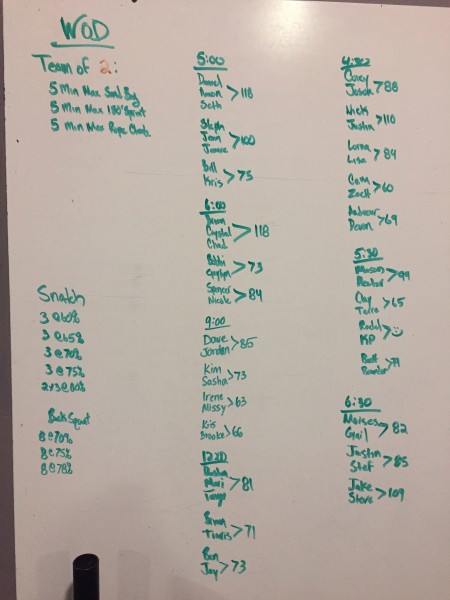 WOD
Team of 2:
5 Min Max Sand Bag
5 Min Max 180' Sprint
5 Min Max Rope Climb
Snatch
3 @ 60%
3 @ 65%
3 @ 70%
3 @ 75%
2x3 @ 80%
Back Squat
8 @ 70%
8 @ 75%
8 @ 78%
5:00
Daniel
Seth
> 118
Steph
Jenn
> 100
Bill
Kris
> 75
6:00
Crystal
Chad
> 118
> 73
Spencer
Nicole
> 84
9:00
Dave
Jordan
> 85
Kim
Sasha
> 73
Irene
Missy
> 63
Kis
Brooke
> 66
Mari
> 81
Travis
> 71
Ben
Jay
> 73
4:30
Corey
Josiah
> 88
Nick
Justin
> 110
Lorna
Lisa
> 84
Cam
Zach
> 60
Andrew
Devon
> 69
5:30
Mason
> 99
Clay
> 65
KP
> 71
6:30
Moises
Gail
> 82
Justin
Stef
> 85
Jake
Steve
> 109